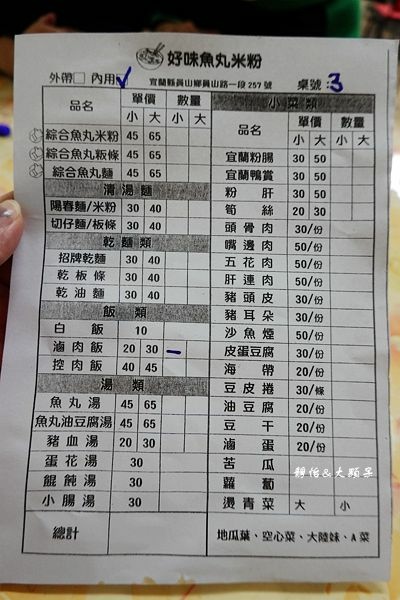 好味魚丸米粉
外帶□ 內用□✓ 宜蘭縣員山鄉員山路一段257號 桌號:3
品名 單價 數量
小 大 小 大
綜合魚丸米粉 45 65
綜合魚丸粄條 45 65
綜合魚丸麵 45 65
清湯麵
陽春麵/米粉 30 40
切仔麵/板條 30 40
乾麵類
招牌乾麵 30 40
乾板條 30 40
乾油麵 30 40
飯類
白飯 10
滷肉飯 20 30 一
控肉飯 40 45
湯類
魚丸湯 45 65
魚丸油豆腐湯 45 65
豬血湯 20 30
蛋花湯 30
餛飩湯 30
小腸湯 30
總計
小菜類
品名 單價 數量
小 大 小 大
宜蘭粉腸 30 50
宜蘭鴨賞 30 50
粉肝 30 50
筍絲 20 30
頭骨肉 30/份
嘴邊肉 50/份
五花肉 50/份
肝連肉 50/份
豬頭皮 30/份
豬耳朵 30/份
沙魚煙 50/份
皮蛋豆腐 30/份
海帶 20/份
豆皮捲 30/條
油豆腐 20/份
豆干 20/份
滷蛋 20/份
苦瓜
蘿蔔
燙青菜 大 小
地瓜葉、空心菜、大陸妹、A菜
靜怡&大顆呆